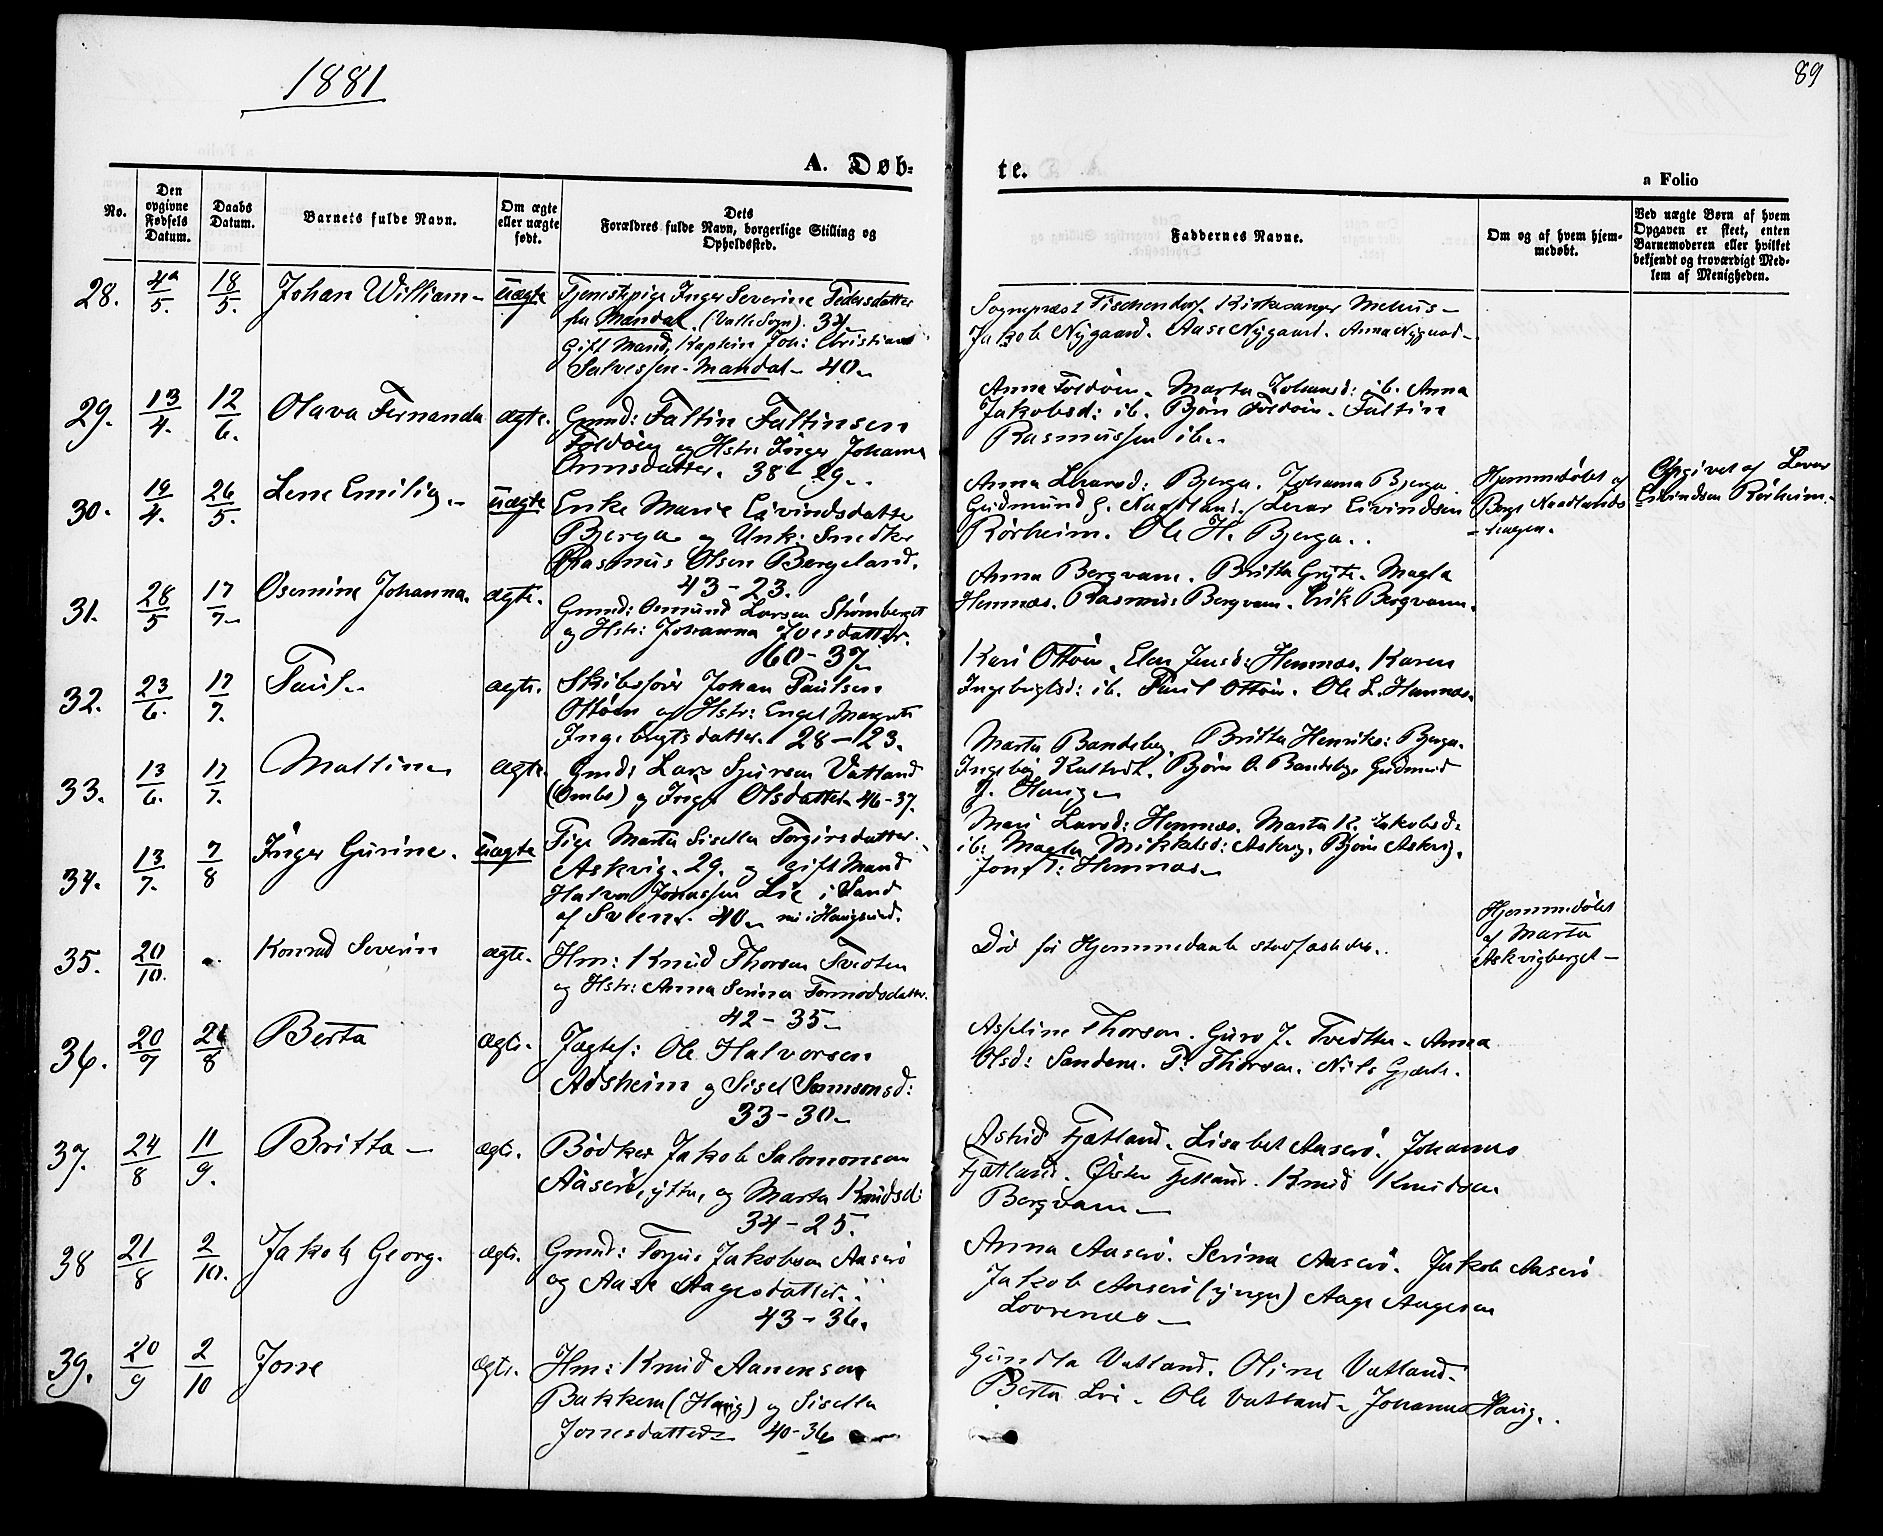 1881
89
A. Døb-
te.
a Folio
No.
Den opgivne Fødsels Datum.
Daabs Datum.
Barnets fulde Navn.
Om ægte eller uægte født.
Dets Forældres fulde Navn, borgerlige Stilling og Opholdssted.
Faddernes Navne.
Om og af hvem hjemmedøbt.
Ved uægte Børn af hvem Opgaven er skeet, enten Barnemoderen eller hvilket bekjendt og troværdigt Medlem af Menigheden.
28. 4/5. 18/5. Johan William uægte
Tjenestepige Inger Severine Pedersdatter
fra Mandal (Valle Sogn). 34
Gift Mand, Kaptein Joh: Christian
Salvessen - Mandal - 40
Sognepræst Tischendorf. Kirkesanger Mehus -
Jakob Nygaard. Aase Nygaard. Anna Nygaard -
29. 13/4. 12/6. Olava Fernanda ægte.
Gmd: Faltin Faltinsen
Foldøen og Hstr: Inger Johanna
Ormsdatter. 38 - 29.
Anna Foldøen. Marta Johansd: ib. Anna
Jakobsd: ib. Bjørn Foldøen. Faltin
Rasmussen ib.
30. 19/4. 26/5. Lene Emilie. uægte
Enke Marie Eivindsdatter
Bjerga og Unk: Snedker
Rasmus Olsen Bergeland.
43 - 23.
Anna Bjerga. Johanna Bjerga
Gudmund G. Naadland. Eivindsen
Rørheim. Ole H. Bjerga.
Hjemmedøbt af
Berge Naadlands-
Opgivet af
Eivindsen Rørheim.
31. 28/5 17/7 Osmine Johanna. ægte.
Gmd: Osmund Larsen Strømberget
og Hstr: Johanna Ivesdatter.
60 - 37.
Anna Bergvam. Britta Magla
Hemnæs. Rasmus Bergvam. Erik Bergvam.
32. 23/6. 17/7. Paul. ægte.
Skibsfører Johan Paulsen
Ottøen og Hstr: Engel Margrete
Ingebrigtsdatter. 28 - 23.
Kari Ottøen. Elen Jensd: Hemnæs. Karen
Ingebrigtsd: ib. Paul Ottøen. Ole L. Hemnæs.
33. 13/6. 17/7. Maltine ægte
Gmd: Lars Sjursen Vatland
(Ombo) og Inger Olsdatter 46 - 37.
Marta Bandeberg. Britta Henriks: Bjerga.
Ingeborg Bjørn O. Bandeberg. Gudmund
J. Haug
34. 13/7. 7/8 Inger Gurine. uægte
Pige Marta Sisella Torgirsdatter
Askvig. 29. og gift Mand
Halvor Jonassen Lie i Sand
af 40 nu i Haugesund.
Mari Larsd: Hemnæs. Marta K. Jakobsd:
ib: Magla Mikkelsd: Askvig. Bjørn Askvig.
Hemnæs
35. 20/10. Konrad Severin ægte.
Hm: Knud Thorsen Tvedten
og Hstr: Anna Serina Tormodsdatter.
42 - 35
Død før Hjemmedaab stadfæstedes.
Hjemmedøbt
af Marta
Askvigberget -
36. 20/7 21/8 Berta ægte.
Jægtef: Ole Halvorsen
Adsheim og Sisel Samsonsd:
33 - 30
Asseline Thorsen. Guro J. Tvedten - Anna
Olsd: Sandem. P. Thorsen. Nils
37. 24/8 11/9. Britta - ægte.
Bødker Jakob Salomonsen
Aaserø, ytre, og Marta Knudsd:
34 - 25.
Astrid Fjætland. Lisabet Aaserø. Johannes
Fjætland. Østen Fjetland. Knud Knudsen
Bergvam -
38 21/8 2/10. Jakob Georg. ægte.
Gmd: Torjus Jakobsen Aaserø
og Aase Aagesdatter.
43 - 36.
Anna Aaserø. Serina Aaserø. Jakob Aaserø
Jakob Aaserø (yngre) Aage Aagesen
Lovrenæs -
39. 20/9 2/10 Jone ægte.
Hm: Knud Aanensen
Bakken (Haug) og Sisella
Jonesdatter 40 - 36
Gundla Vatland. Oline Vatland.
Berta Lie. Ole Vatland. Johannes Haug.